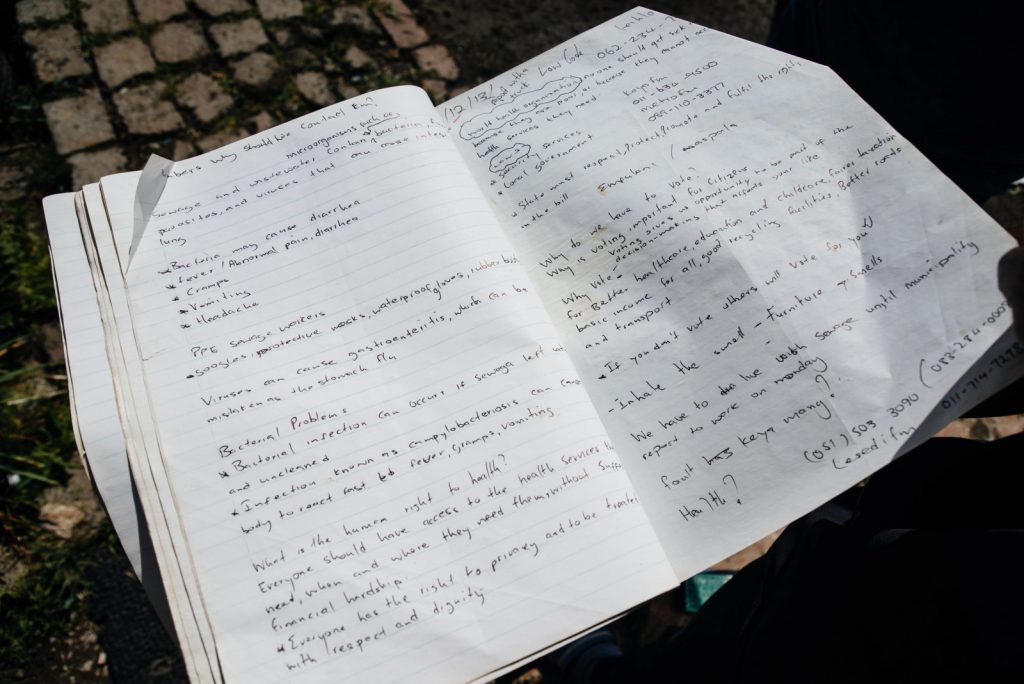 Why should We Contact Em?
microorganisms such as
Sewage and wastewater Contain bacteria,
parasites, and viruses that can cause
lung
* Bacteria may cause diarrhea
* Fever / Abnormal pain, diarrhea
* Cramps
* Vomiting
* Headache
PPE Sewage workers
* Googles, protective masks, waterproof gloves, rubber boots
Viruses can cause gastroenteritis, which can be
mistaken as the stomach flu
Bacterial Problems
* Bacterial infection can occurr if Sewage left
and uncleaned
* Infection known as campylobacteriosis can cause
body to react fast to fever, Cramps, vomiting.
What is the human right to health?
Everyone should have access to the health services they
need, when and where they need them, without
financial hardship.
* Everyone has the right to privacy and to be treated
with respect and dignity
/12/13/
Low Cook
062-234-
World health organization no one should get sick
because they are poor, or because they cannot
health services they need
Kaya Fm
011 634 9500
metro Fm
089-110-3377
Laws
* Security services
* Local government
* State must respect, Protect, Promote and fulfil the rights
in the bill
Why do we have to Vote?
Why is voting important for Citizens
- Voting gives us opportunity to be part of
decision-making that affects your life
Why Vote
for Better healthcare, education and childcare, fairer taxation
basic income for all, good recycling facilities, Better roads
and transport
* If you don't vote others will vote for you
- Inhale the smell - Furniture smells
We have to live with sewage until municipality
report to work on monday
fault has keya many?
Health?
(051) 503 3090
Lesedi fm
011-714-